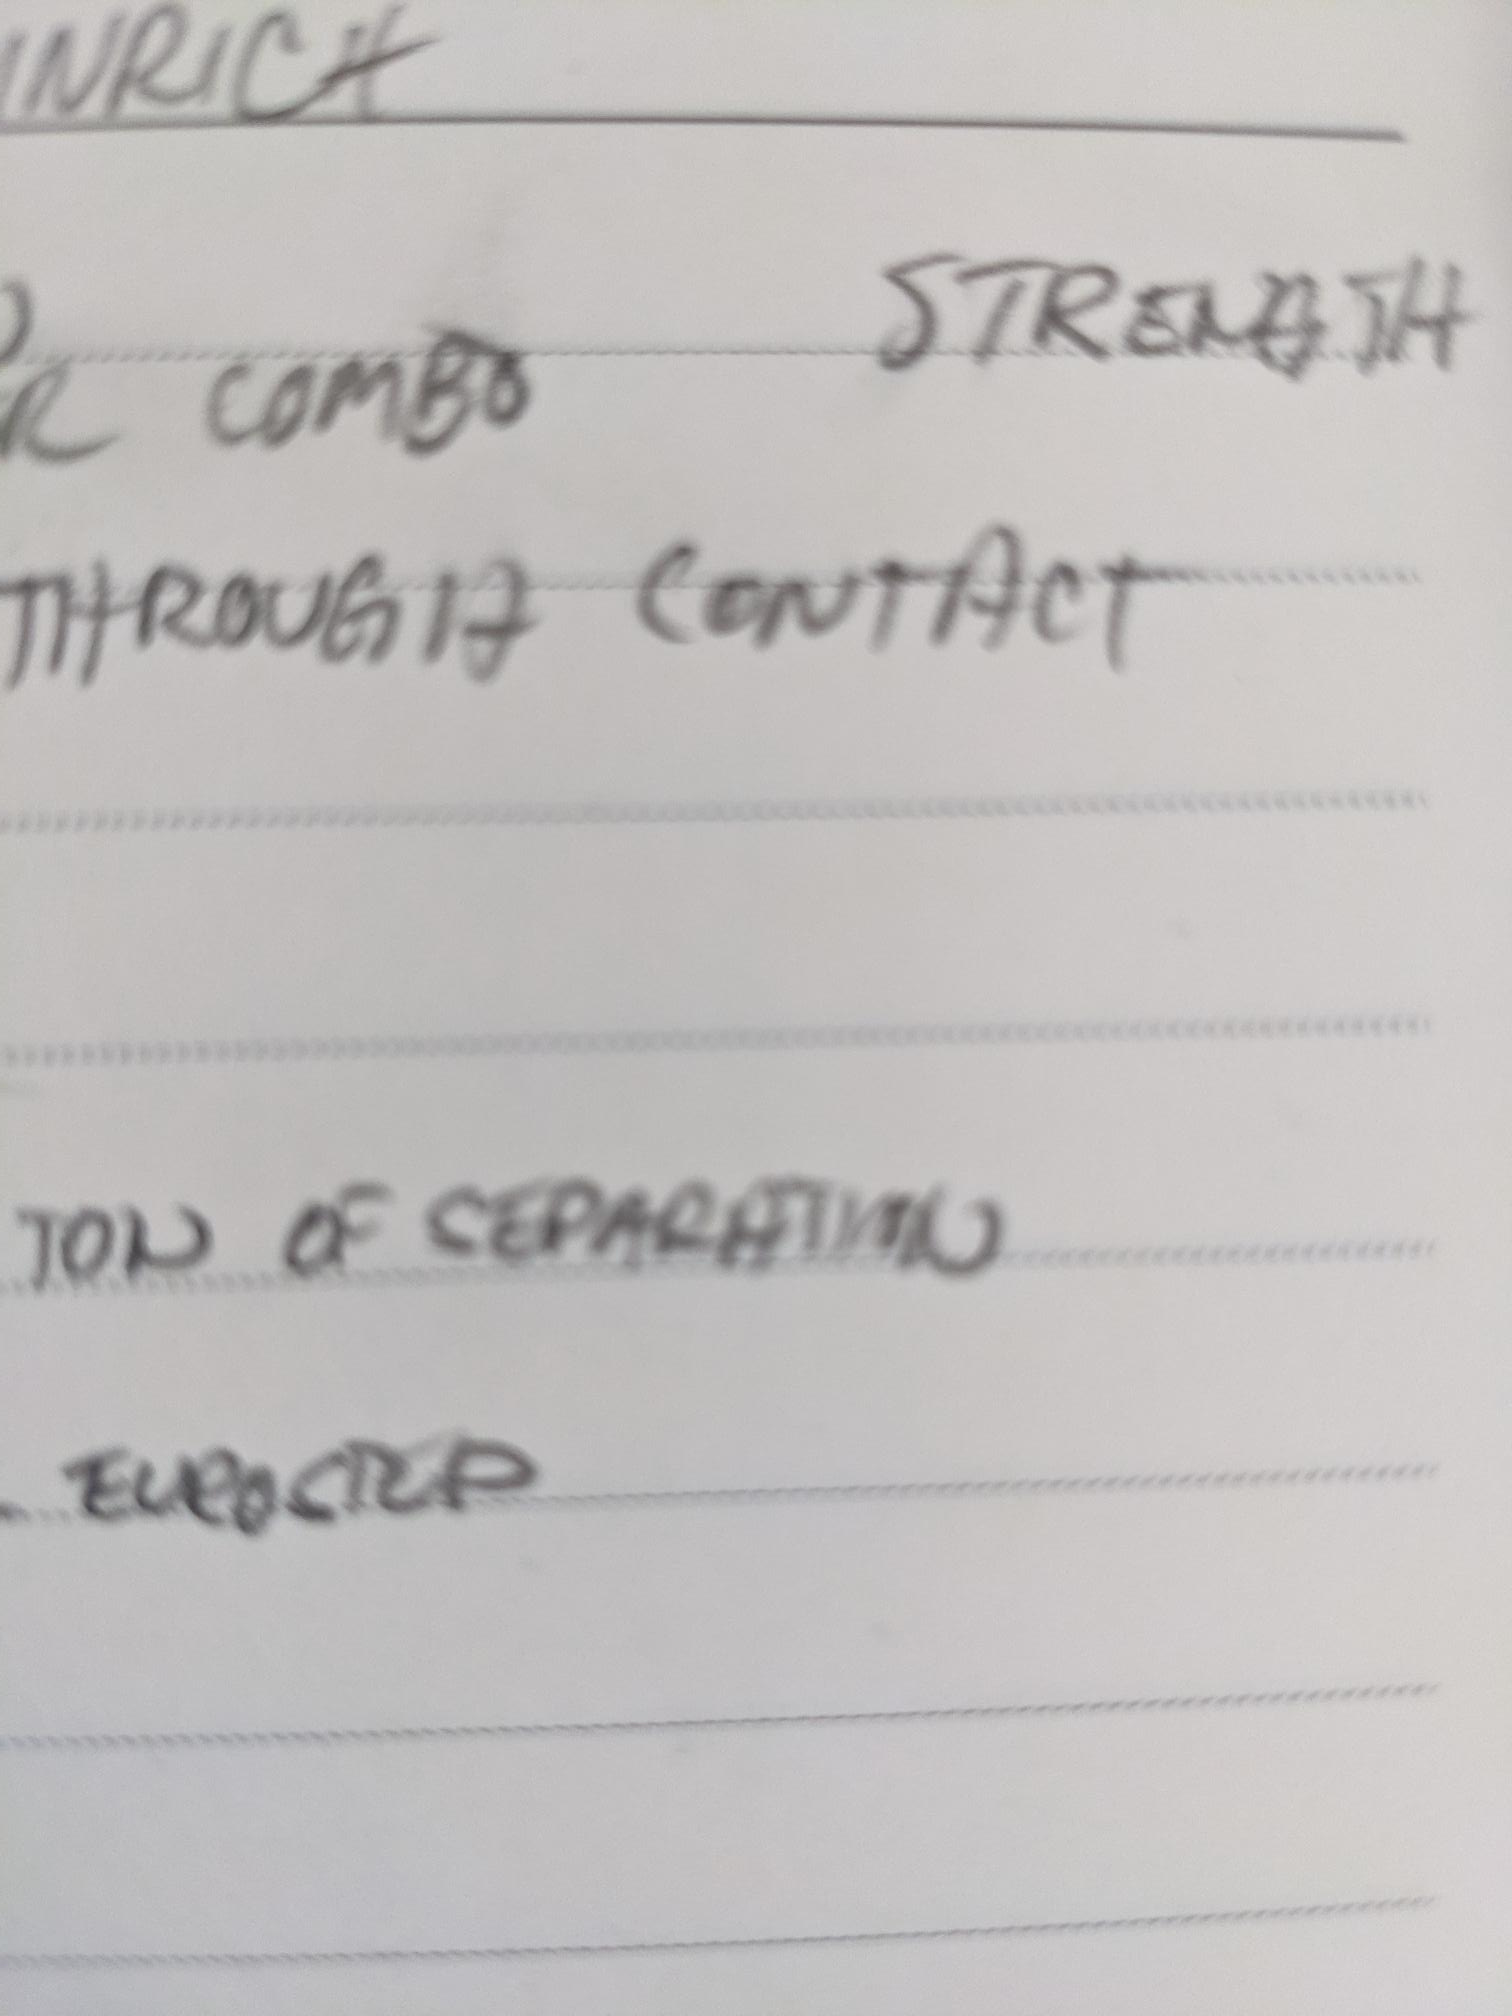 INRICH
STRENGTH
R COMBO
THROUGH CONTACT
TON OF SEPARATION
EUROSTEP